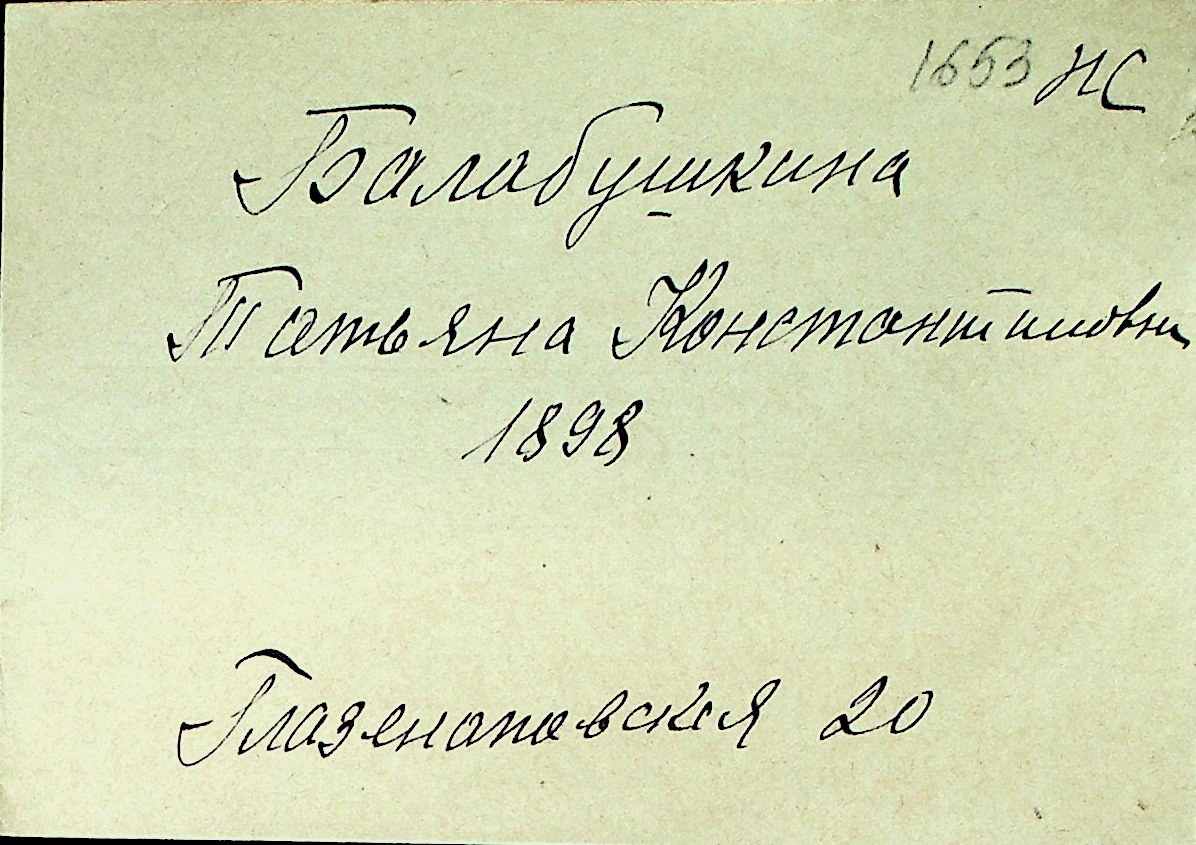 1653 НС
Балабушкина
Татьяна Константиновна
1898
Глазенаповская 20